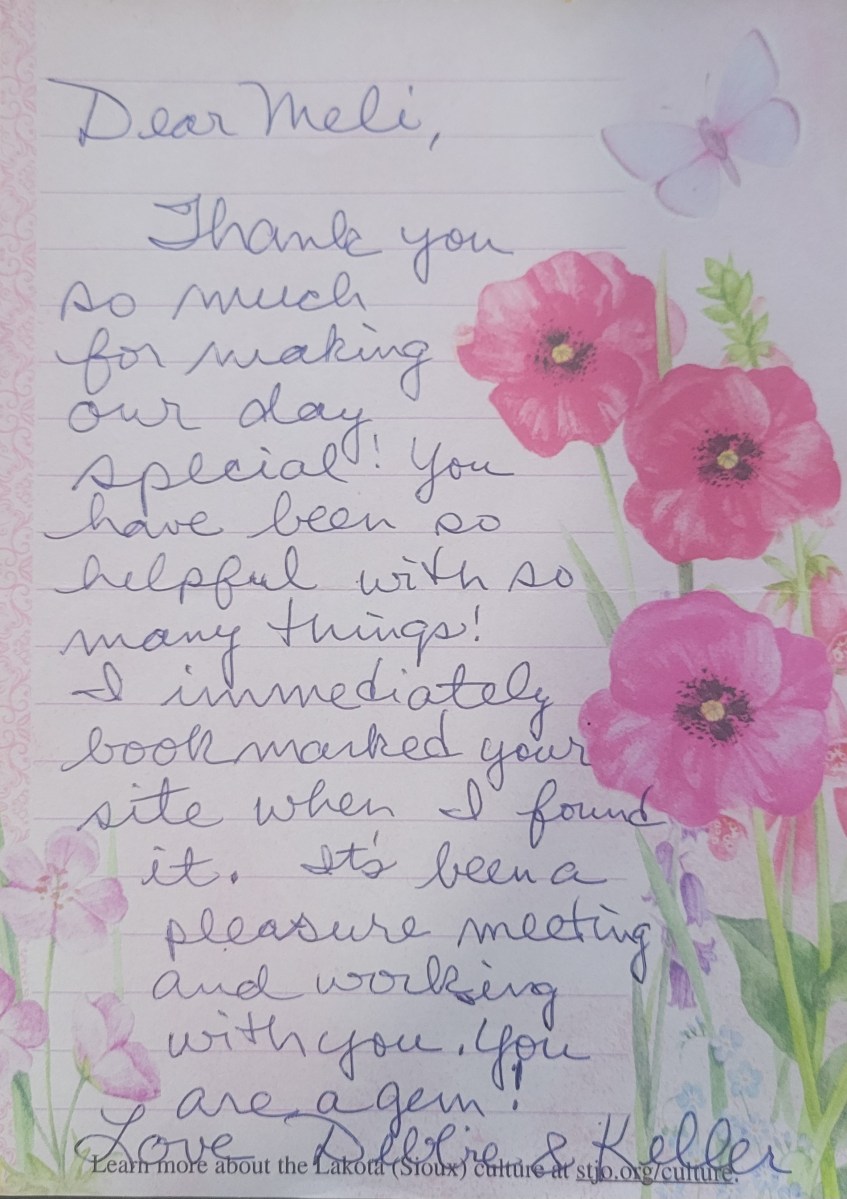 Dear Meli,
Thank you
so much
for making
our day
special! You
have been so
helpful with so
many things!
I immediately
bookmarked your
site when I found
it. It's been a
pleasure meeting
and working
with you. You
are a gem!
Love Debbie & Keller
Learn more about the Lakota (Sioux) culture at stjo.org/culture.